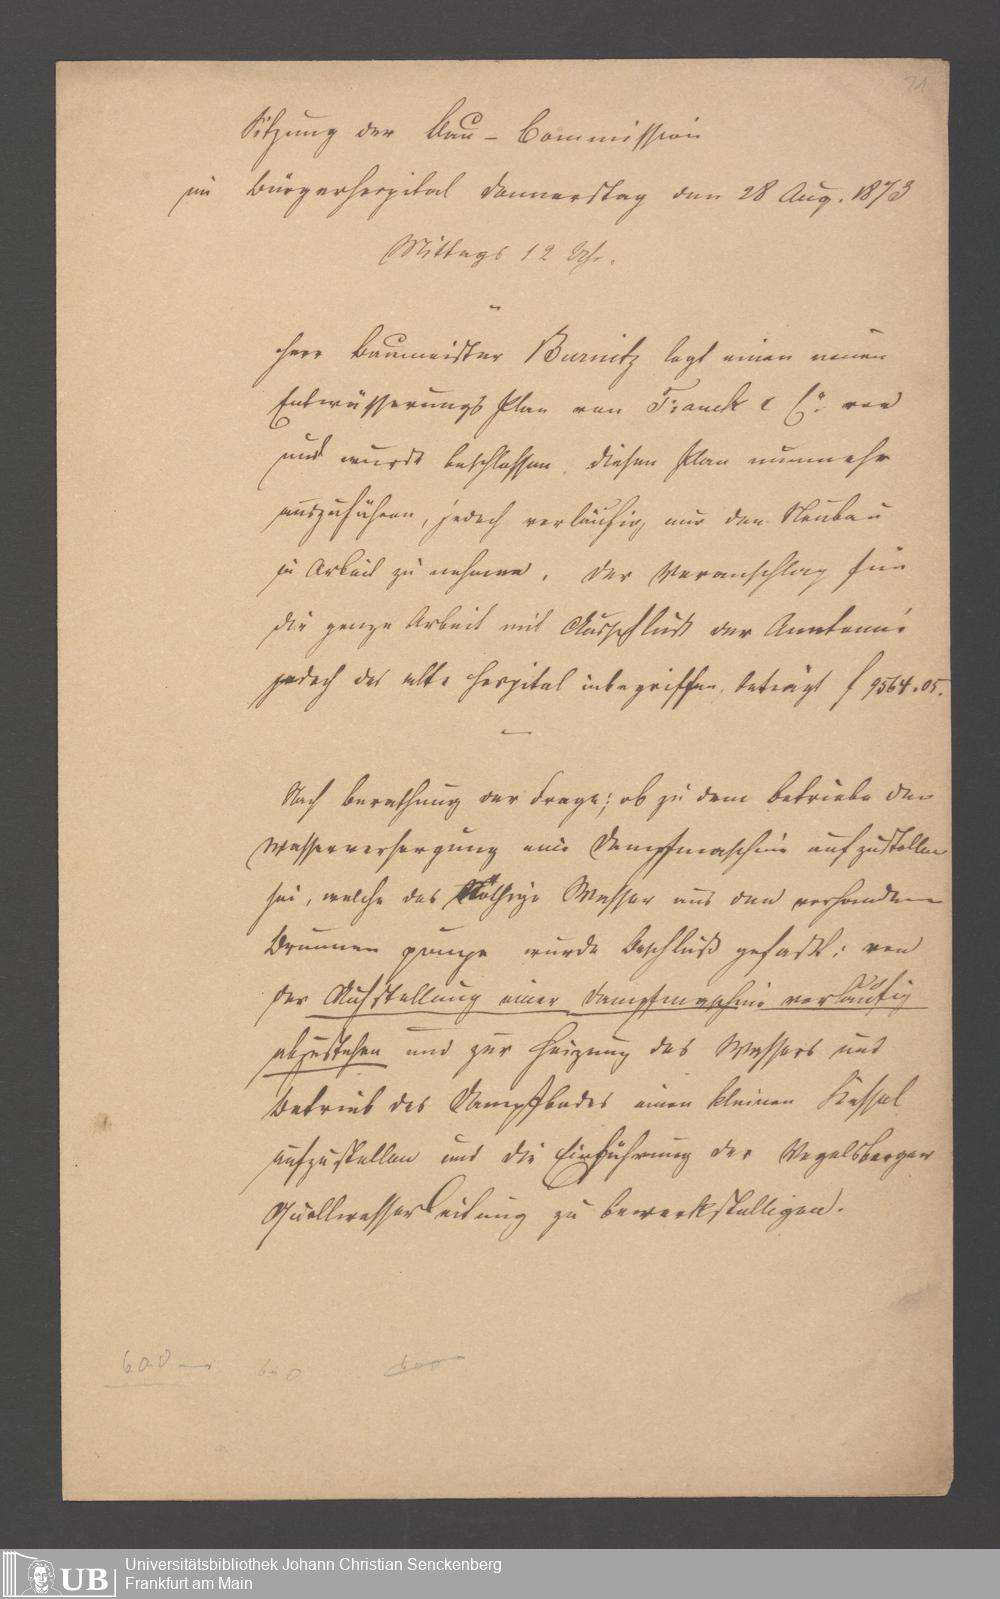 21
Sitzung der Bau-Commission
im Bürgerhospital Donnerstag den 28 Aug. 1873
Mittags 12 Uhr.
Herr Baumeister Burnitz legt einen neuen
Entwässerungs Plan von Franck & Co. vor
und wurde beschlossen diesen Plan nunmehr
auszuführen, jedoch vorläufig nur den Neubau
in Arbeit zu nehmen. Der Voranschlag für
die ganze Arbeit mit Ausschluß der Anatomie
jedoch das alte Hospital inbegriffen, beträgt f 9564.05.
Nach Berathung der Frage; ob zu dem Betriebe der
Wasserversorgung eine Dampfmaschine aufzustellen
sei, welche das Nöthige Wasser aus den vorhandenen
Brunnen pumpe wurde Beschluß gefaßt: von
der Aufstellung einer Dampfmaschine vorläufig
abzustehen und zur Heizung des Wassers und
Betrieb des Dampfbades einen kleinen Kessel
aufzustellen und die Einführung der Vogelsberger
Quellwasserleitung zu bewerkstelligen.
600
600
600
UB
Universitätsbibliothek Johann Christian Senckenberg
Frankfurt am Main